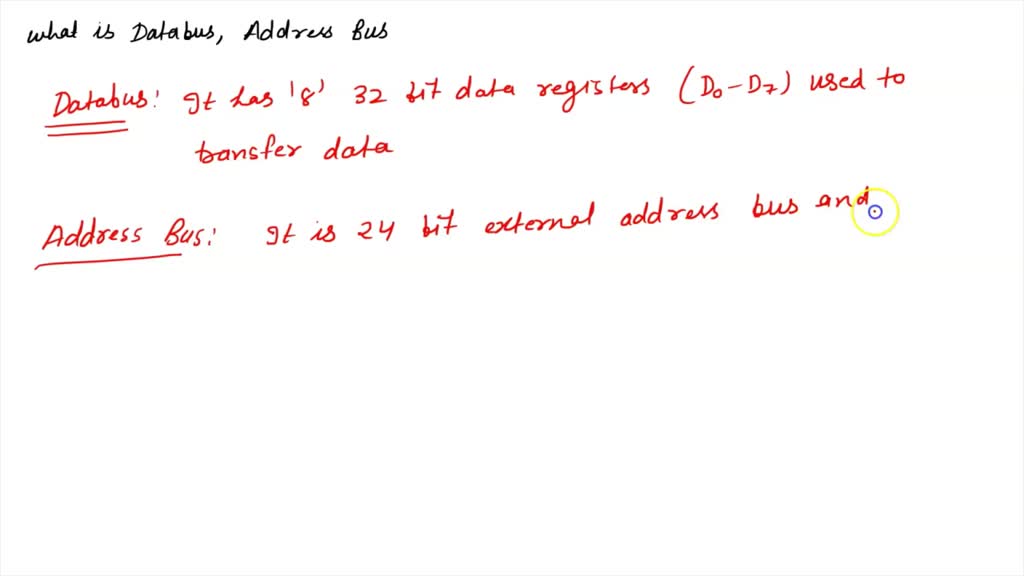 what is Databus, Address Bus
Databus: It has '8' 32 bit data registers (D0-D7) used to
transfer data
Address Bus: It is 24 bit external address bus and